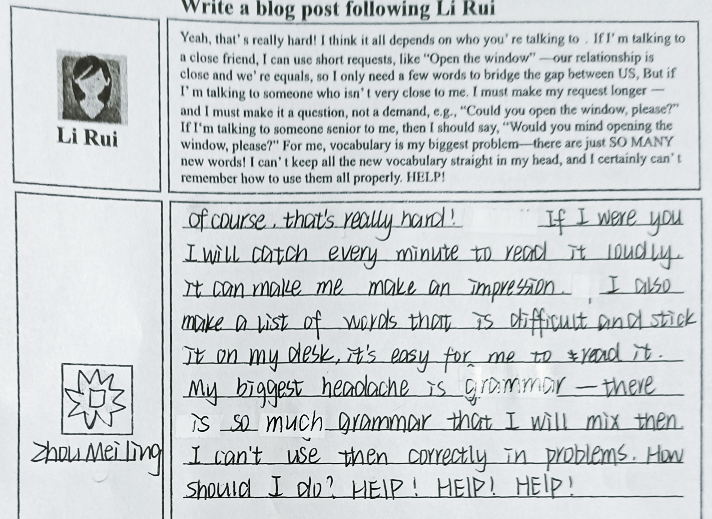 Write a blog post following Li Rui
Yeah, that's really hard! I think it all depends on who you're talking to . If I'm talking to
a close friend, I can use short requests, like "Open the window" —our relationship is
close and we're equals, so I only need a few words to bridge the gap between US, But if
I'm talking to someone who isn't very close to me. I must make my request longer —
and I must make it a question, not a demand, e.g., "Could you open the window, please?"
If I'm talking to someone senior to me, then I should say, "Would you mind opening the
window, please?" For me, vocabulary is my biggest problem—there are just SO MANY
new words! I can't keep all the new vocabulary straight in my head, and I certainly can't
remember how to use them all properly. HELP!
Li Rui
of course, that's really hard! If I were you
I will catch every minute to read it loudly.
it can make me make an impression. I also
make a list of words that is difficult and stick
it on my desk, it's easy for me to read it.
My biggest headache is grammar — there
is so much grammar that I will mix then.
I can't use then correctly in problems. How
should I do? HElP! HElP! HElP!
Zhou Mei ling